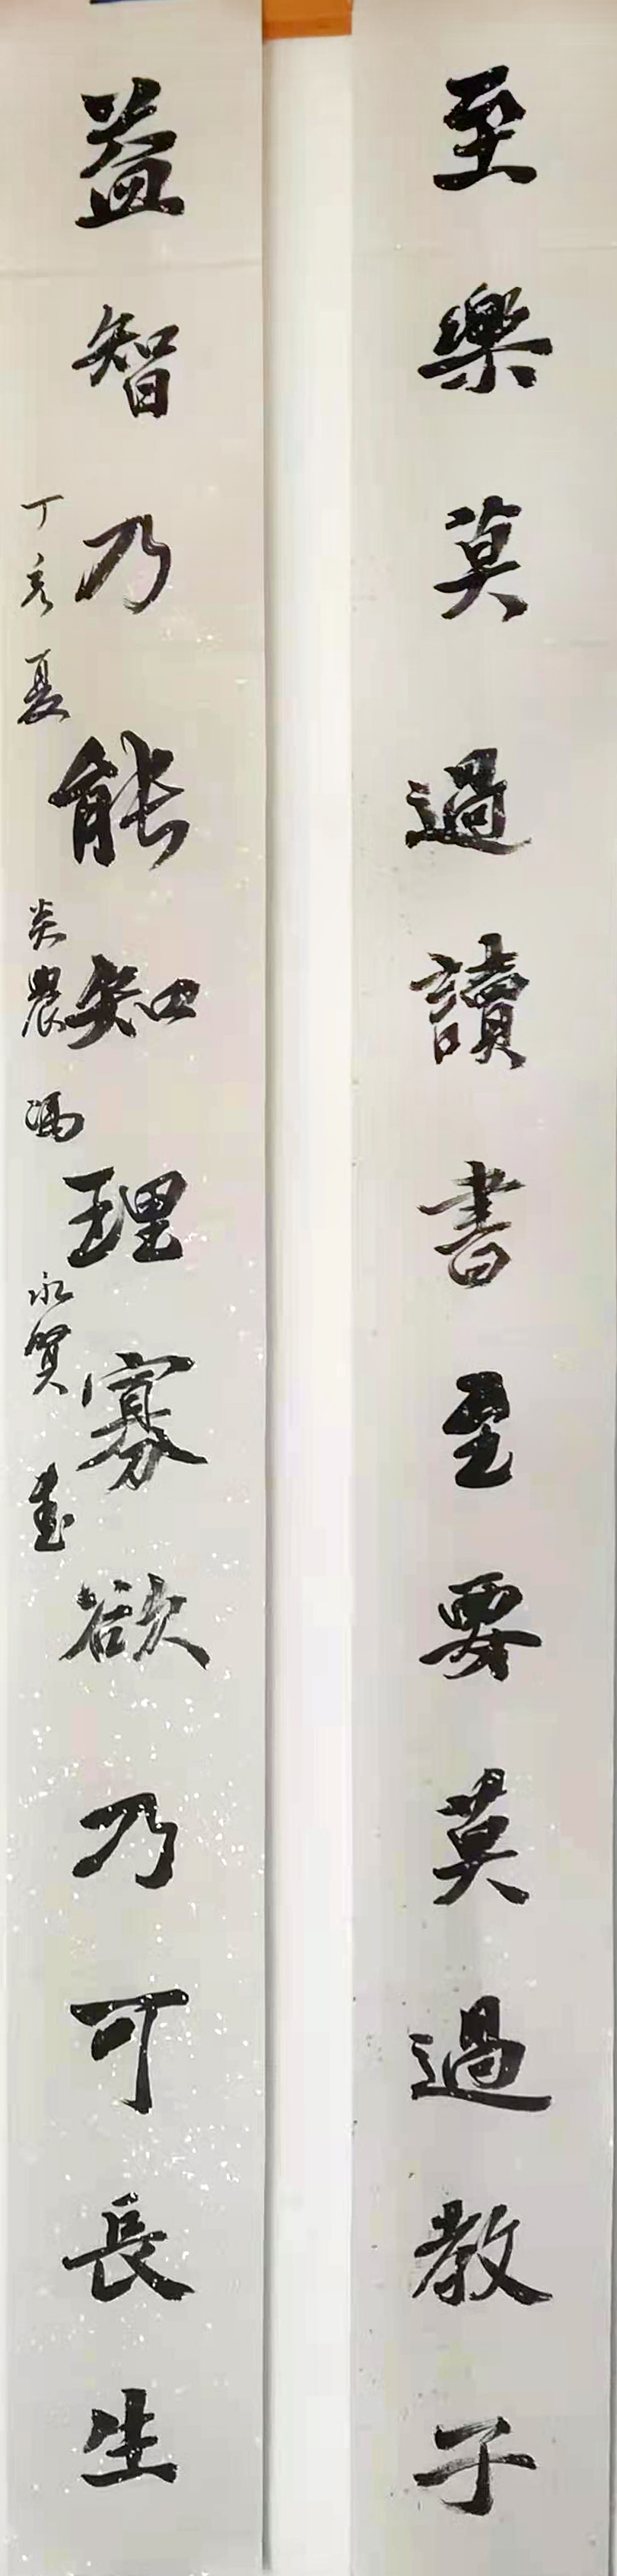 至樂莫過讀書至要莫過教子
益智乃能知理寡欲乃可長生
丁亥夏炎農馮永賀書